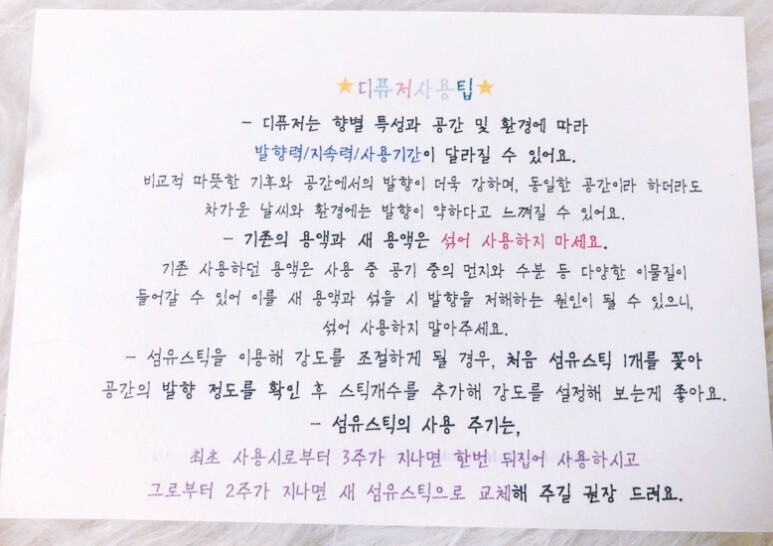 ★디퓨저사용팁★
- 디퓨저는 향별 특성과 공간 및 환경에 따라
발향력/지속력/사용기간이 달라질 수 있어요.
비교적 따뜻한 기후와 공간에서의 발향이 더욱 강하며, 동일한 공간이라 하더라도
차가운 날씨와 환경에는 발향이 약하다고 느껴질 수 있어요.
- 기존의 용액과 새 용액은 섞어 사용하지 마세요.
기존 사용하던 용액은 사용 중 공기 중의 먼지와 수분 등 다양한 이물질이
들어갈 수 있어 이를 새 용액과 섞을 시 발향을 저해하는 원인이 될 수 있으니,
섞어 사용하지 말아주세요.
- 섬유스틱을 이용해 강도를 조절하게 될 경우, 처음 섬유스틱 1개를 꽂아
공간의 발향 정도를 확인 후 스틱개수를 추가해 강도를 설정해 보는게 좋아요.
- 섬유스틱의 사용 주기는,
최초 사용시로부터 3주가 지나면 한번 뒤집어 사용하시고
그로부터 2주가 지나면 새 섬유스틱으로 교체해 주길 권장 드려요.